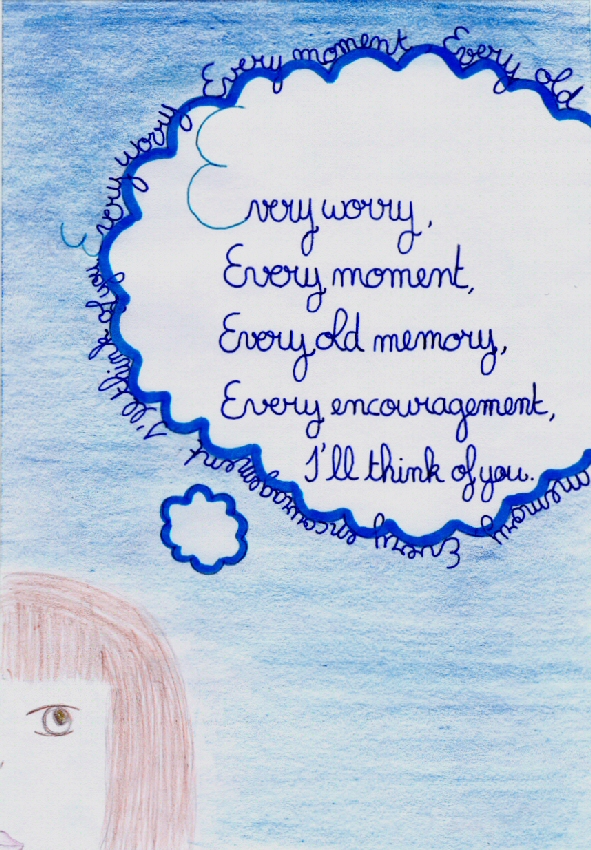 Every worry,
Every moment,
Every old memory,
Every encouragement,
I'll think of you.
Every worry Every moment Every old memory Every encouragement I'll think of you